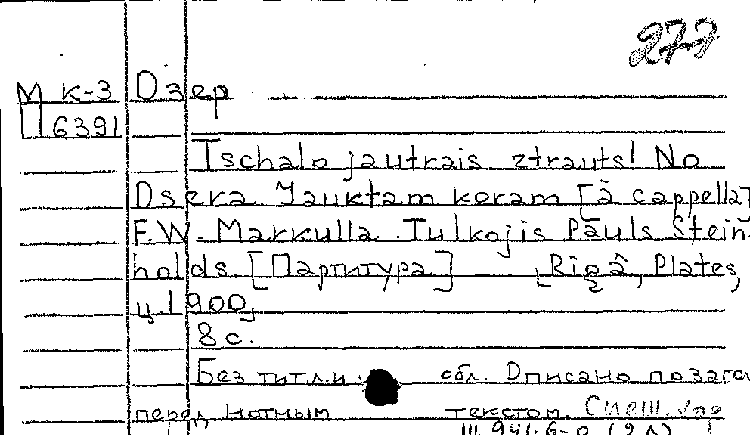 277
М к-3 Озер
П 6391
Tschalo jautrais ztrauts! No
Osera. Jauktam koram [à cappella]
F.W. Markulla. Tulkojis Pāuls Stein-
holds. [Партитура] Rigâ, Plates,
ц. 1900.
8 с.
Без титл. и обл. Описано по заго
перед нотным текстом.